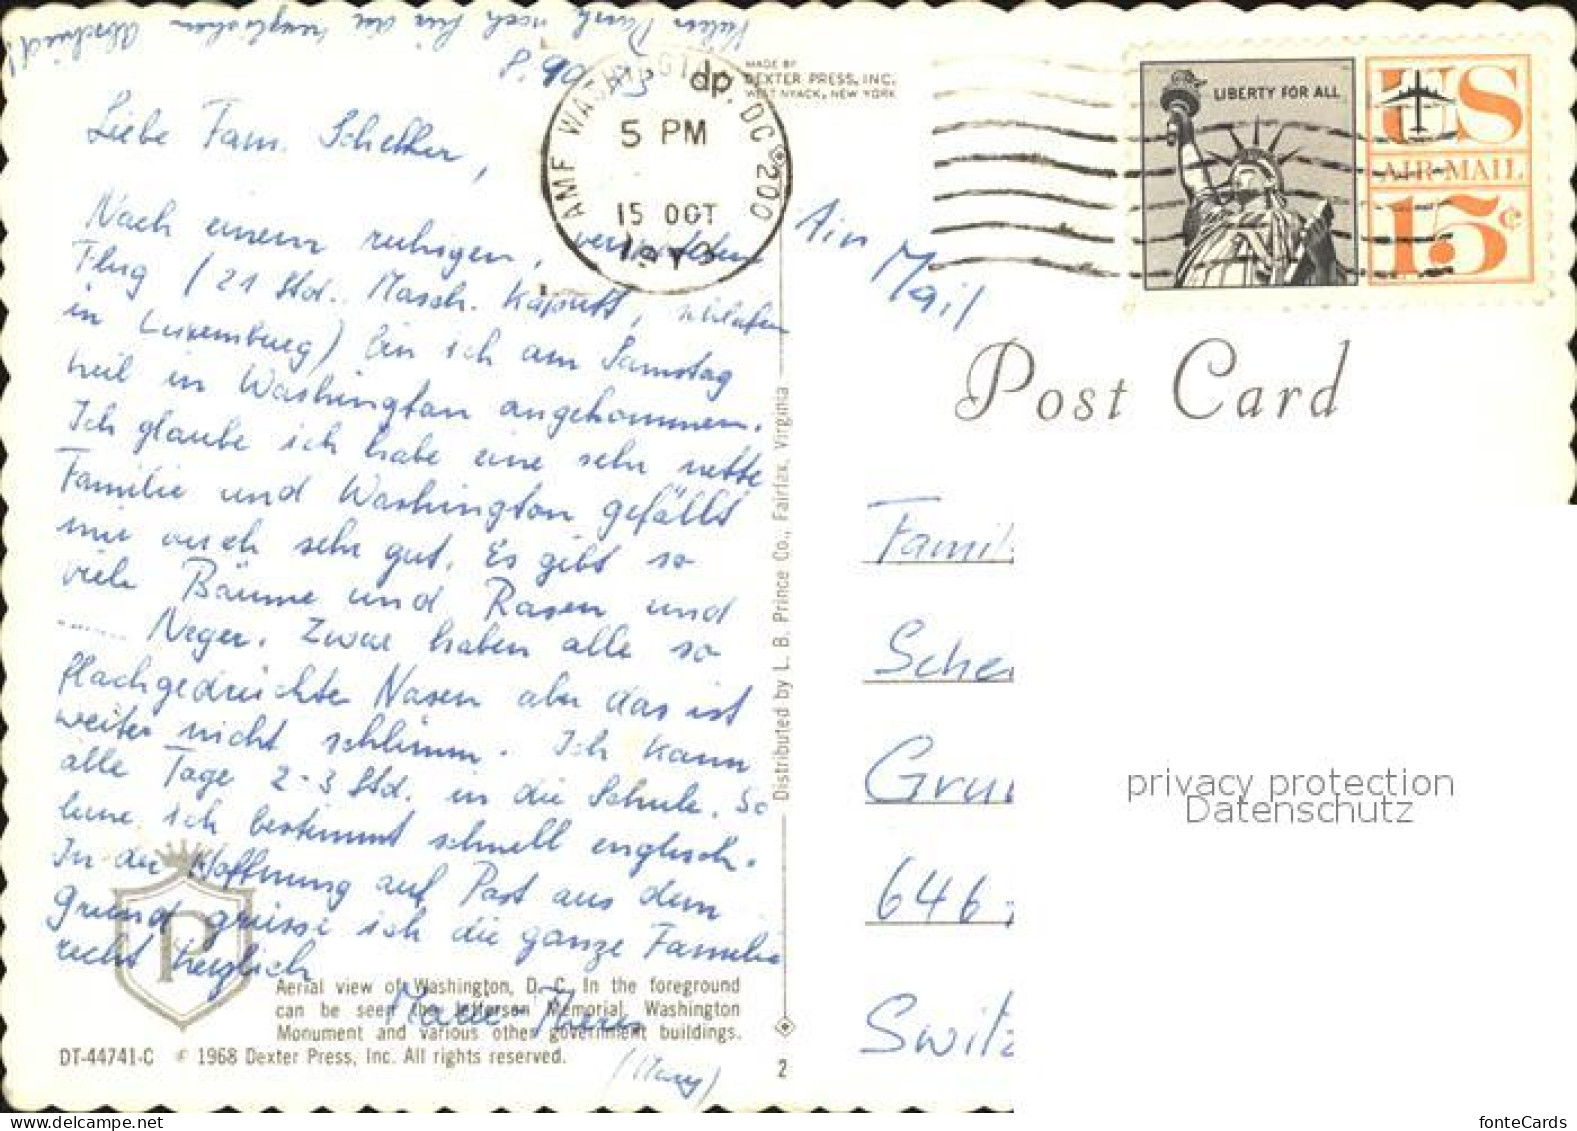 Vielen Dank noch für die herzlichen Abschied!
8. 90
Liebe Fam. Schelker,
Nach einem ruhigen,
Flug (21 Std. Masch. kaputt, schlafen
in Luxemburg) bin ich am Samstag
heil in Washington angekommen.
Ich glaube ich habe eine sehr nette
Familie und Washington gefällt
mir auch sehr gut. Es gibt so
viele Bäume und Rasen und
........ Neger. Zwar haben alle so
flachgedrückte Nasen aber das ist
weiter nicht schlimm. Ich kann
alle Tage 2-3 Std. in die Schule. So
lerne ich bestimmt schnell englisch.
In der Hoffnung auf Post aus dem
Grund grüsse ich die ganze Familie
recht herzlich
Marie-Theres
(Mary)
P
Aerial view of Washington, D. C. In the foreground
can be seen the Jefferson Memorial, Washington
Monument and various other government buildings.
DT-44741-C © 1968 Dexter Press, Inc. All rights reserved.
dp
MADE BY
DEXTER PRESS, INC.
WEST NYACK, NEW YORK
AMF WASHINGTON, DC 200
5 PM
15 OCT
Distributed by L. B. Prince Co., Fairfax, Virginia
2
LIBERTY FOR ALL
US
AIR MAIL
15¢
Air Mail
Post Card
Famil
Sche
Gru
646
Switz
privacy protection
Datenschutz
fonteCards